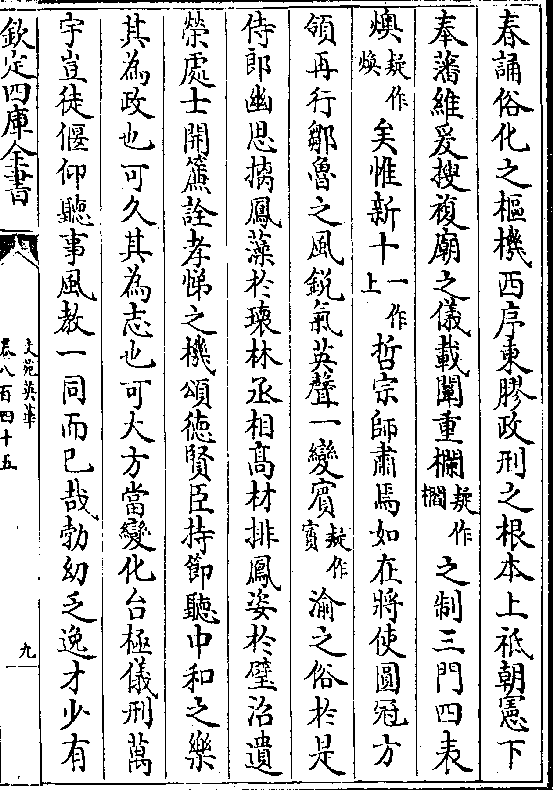 春誦俗化之樞機西序東膠政刑之根本上祗朝憲下
奉藩維爰搜複廟之儀載闡重欄疑作櫩之制三門四表
燠疑作煥矣惟新十一作上哲宗師肅焉如在將使圓冠方
領再行鄒魯之風鋭氣英聲一變賓疑作賨渝之俗於是
侍郎幽思摛鳳藻於瓌林丞相髙材排鳳姿於璧治遺
榮處士開簾詮孝悌之機頌德賢臣持節聽中和之樂
其為政也可久其為志也可大方當變化台極儀刑萬
宇豈徒偃仰聽事風教一同而已哉勃幼乏逸才少有
欽定四庫全書
文苑英華
卷八百四十五
九